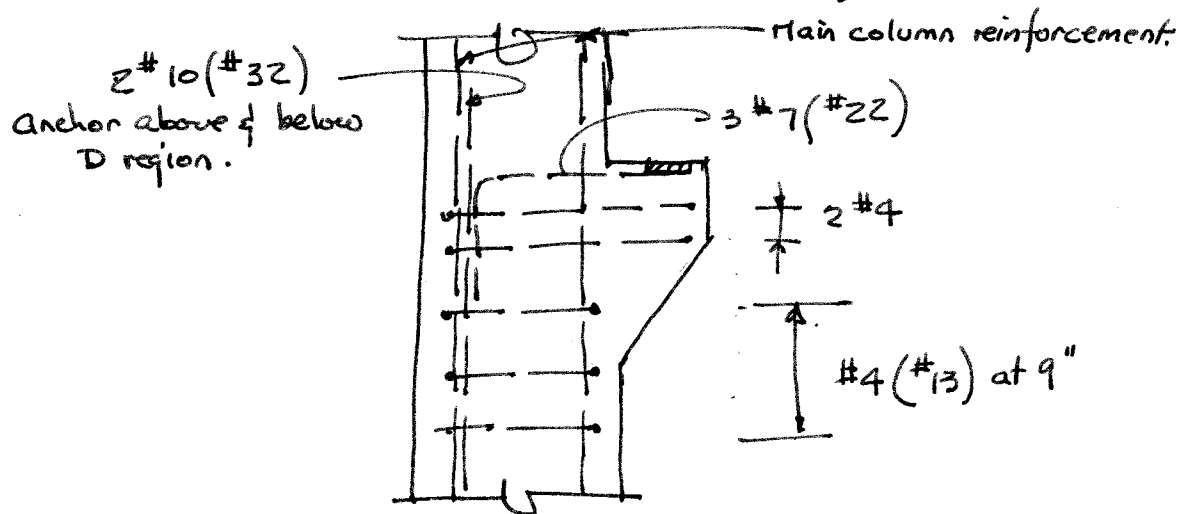 Main column reinforcement.
2 #10 (#32)
Anchor above & below
D region.
3 #7 (#22)
2 #4
#4 (#13) at 9"